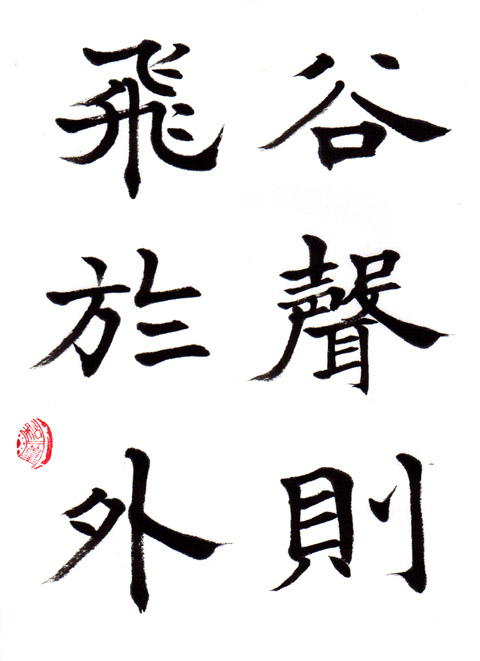 谷聲則
飛於外